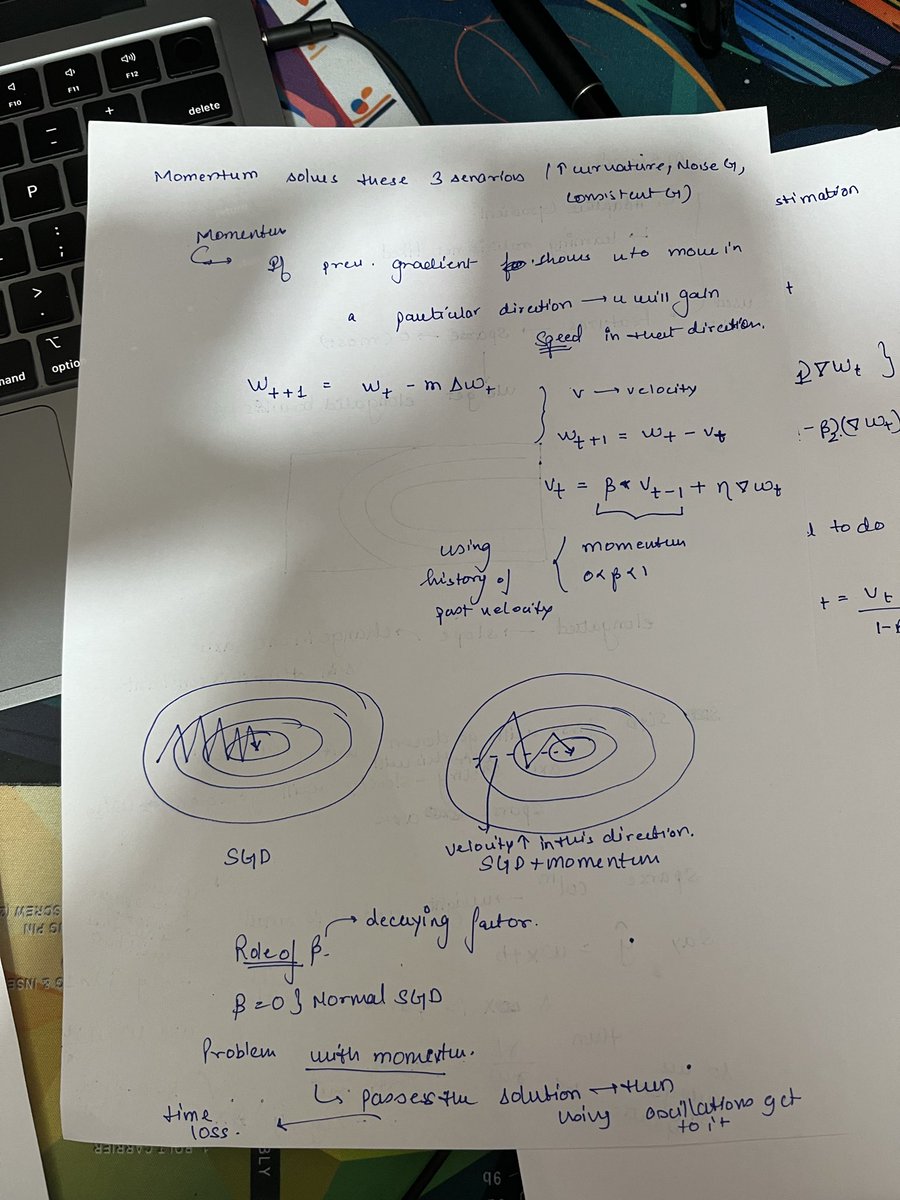 Momentum solves these 3 senarios (↑ curvature, Noise G,
consistent G)
Momentum
If prev. gradient shows u to move in
a particular direction → u will gain
speed in that direction.
W_{t+1} = W_t - m Δw_t
v → velocity
W_{t+1} = W_t - V_t
V_t = β * V_{t-1} + η ∇w_t
using
history of
past velocity
momentum
0 < β < 1
SGD
velocity ↑ in this direction.
SGD + momentum
Role of β → decaying factor.
β = 0 } Normal SGD
Problem with momentum.
↳ passes the solution → then
using oscillations get
to it
time
loss.
stimation
t
∇W_t }
- β_2) (∇W_t)
to do
t = V_t
1 -
delete
F10
F11
F12
P
optio
mand